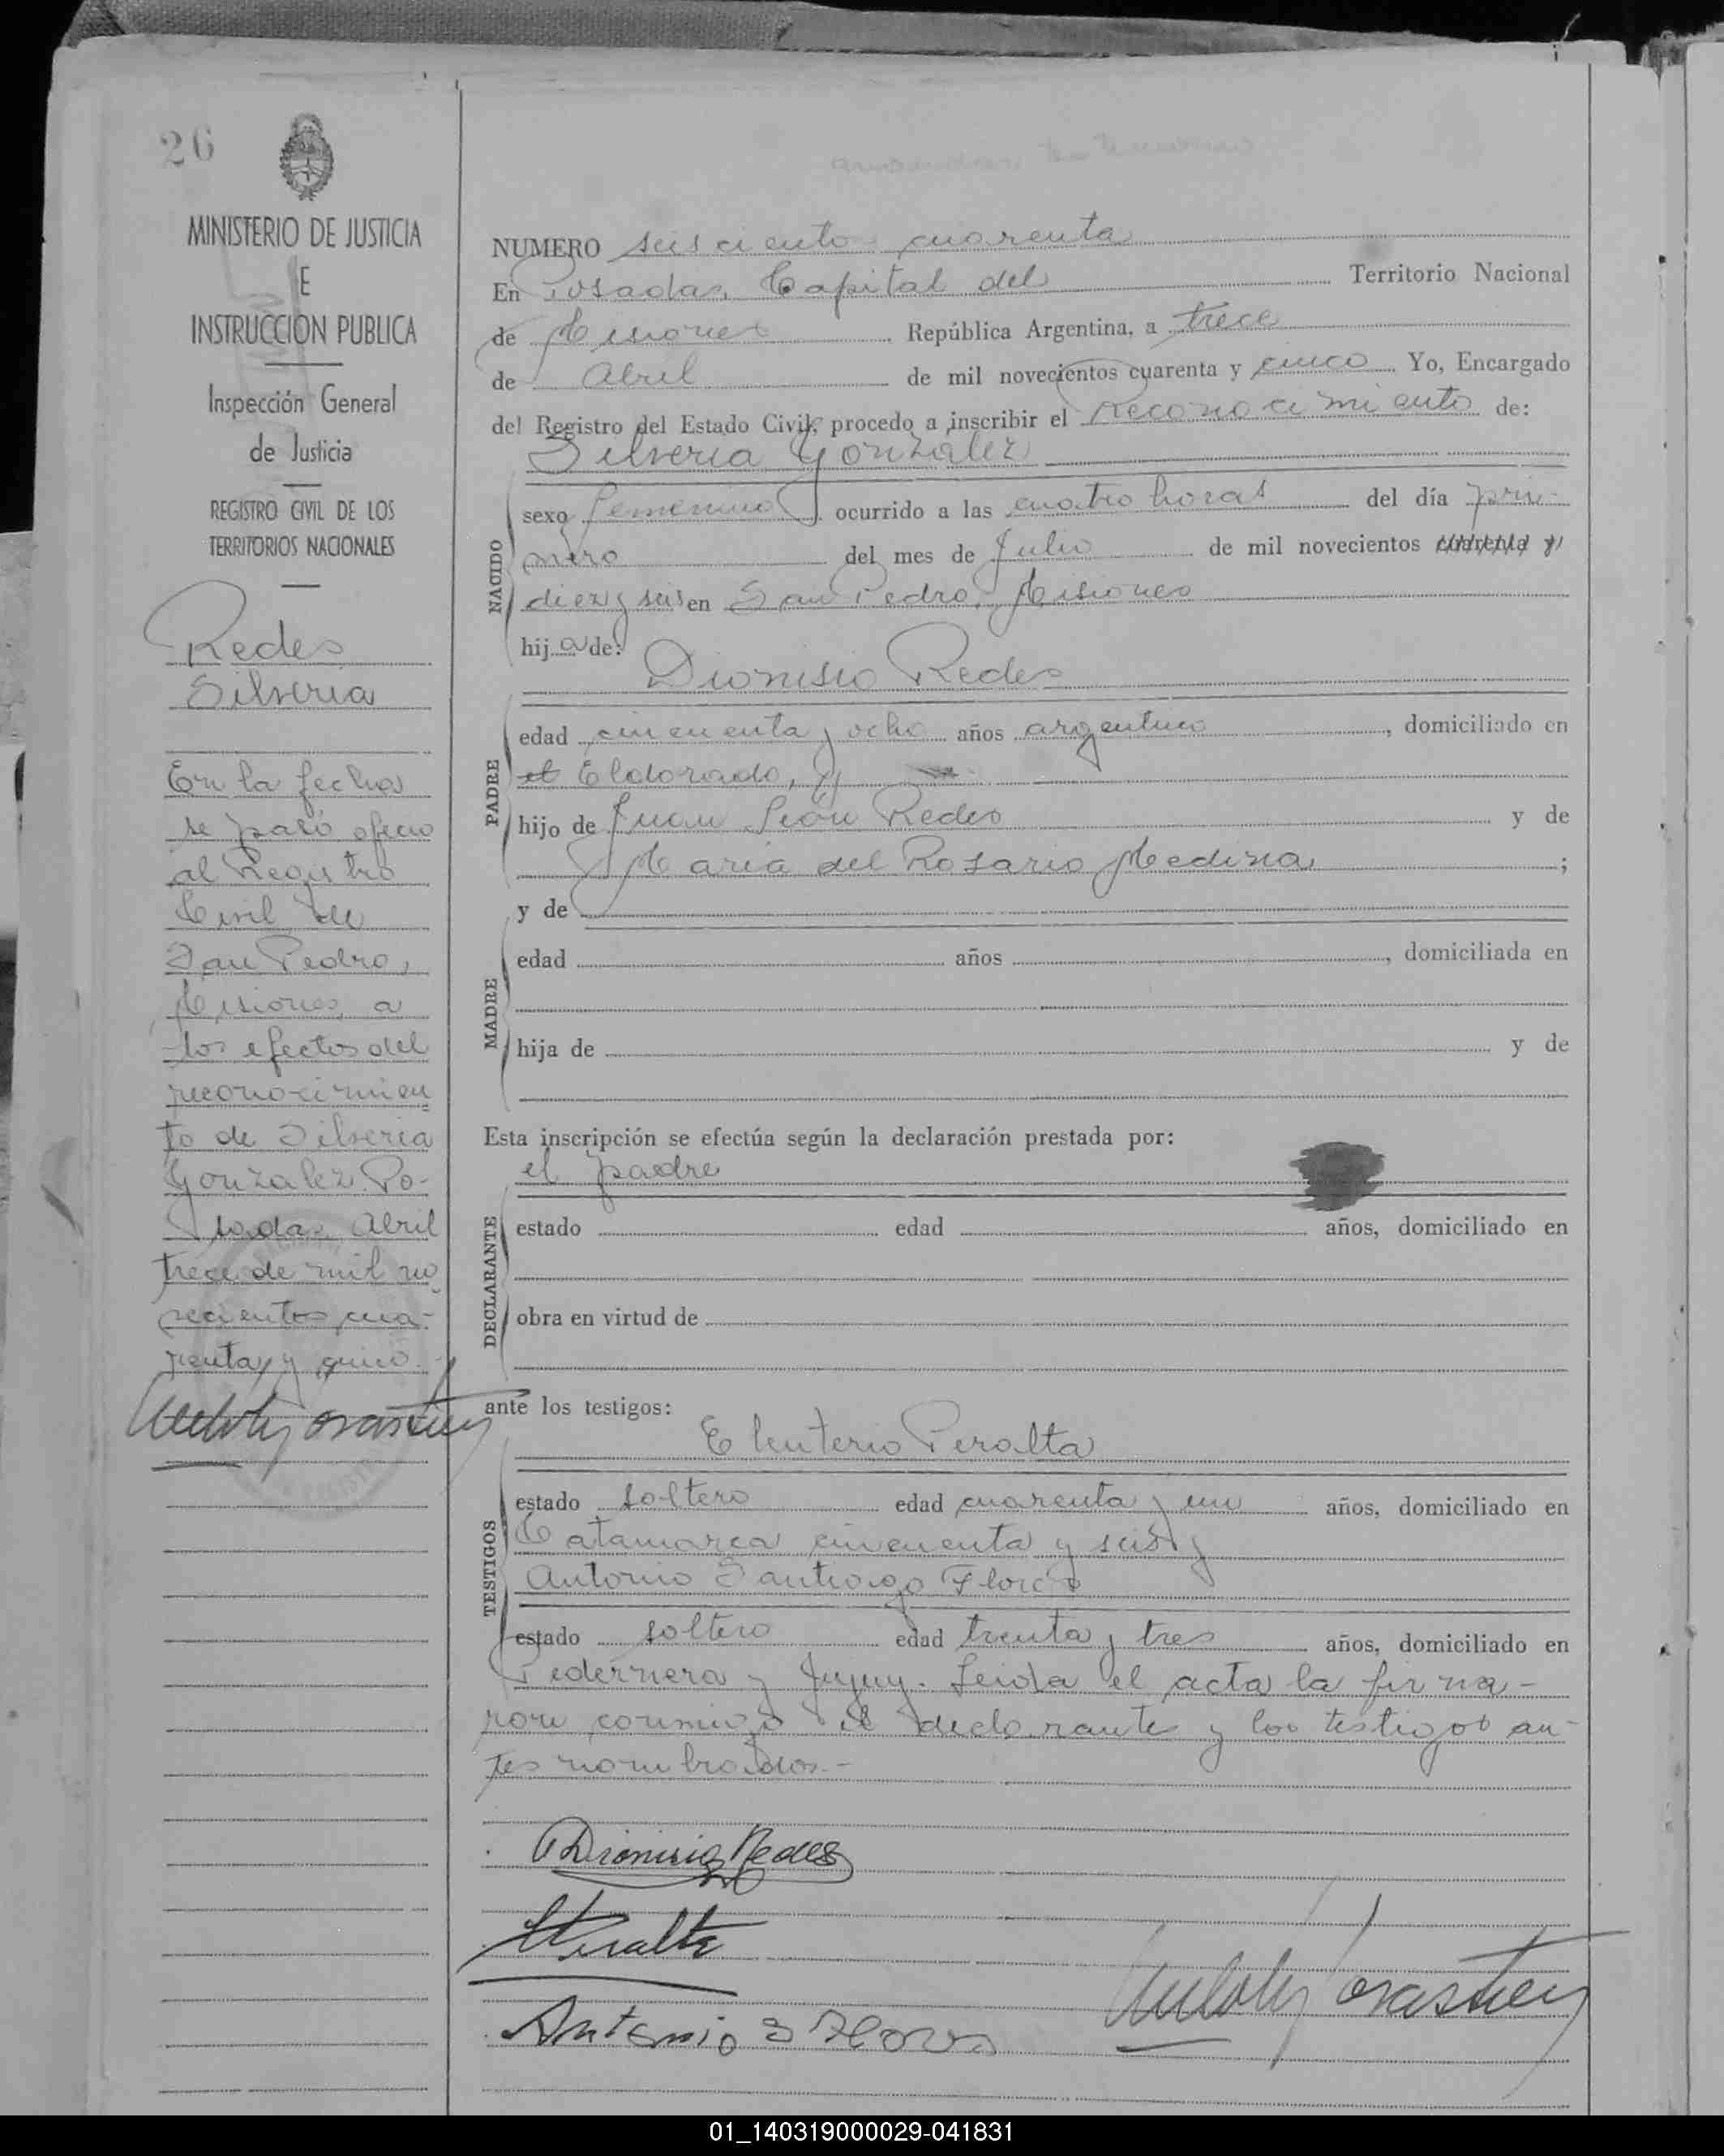 26
MINISTERIO DE JUSTICIA
E
INSTRUCCION PUBLICA
Inspección General
de Justicia
REGISTRO CIVIL DE LOS
TERRITORIOS NACIONALES
Redes
Silveria
En la fecha
se pasó oficio
al Registro
Civil de
San Pedro,
Misiones, a
los efectos del
reconocimien
to de Silveria
Gonzalez. Po-
sadas, Abril
trece de mil no
vecientos cua-
renta y cinco.
NUMERO seiscientos cuarenta
En Posadas, Capital del Territorio Nacional
de Misiones República Argentina, a trece
de Abril de mil novecientos cuarenta y cinco Yo, Encargado
del Registro del Estado Civil, procedo a inscribir el Reconocimiento de:
Silveria González
NACIDO
sexo femenino ocurrido a las cuatro horas del día pri-
mero del mes de Julio de mil novecientos cuarenta y
diez y seis en San Pedro, Misiones
hij a de:
Dionisio Redes
PADRE
edad cincuenta y ocho años argentino, domiciliado en
el Eldorado,
hijo de Juan León Redes y de
María del Rosario Medina;
y de
MADRE
edad años , domiciliada en
hija de y de
Esta inscripción se efectúa según la declaración prestada por:
el padre
DECLARANTE
estado edad años, domiciliado en
obra en virtud de
ante los testigos:
Eleuterio Peralta
TESTIGOS
estado soltero edad cuarenta y un años, domiciliado en
Catamarca cincuenta y seis y
Antonio Santiago Flores
estado soltero edad treinta y tres años, domiciliado en
Pedernera y Jujuy. Leida el acta la firma-
ron conmigo el declarante y los testigos an-
tes nombrados.-
Dionisio Redes
EPeralta
Antonio S Flores
01_140319000029-041831